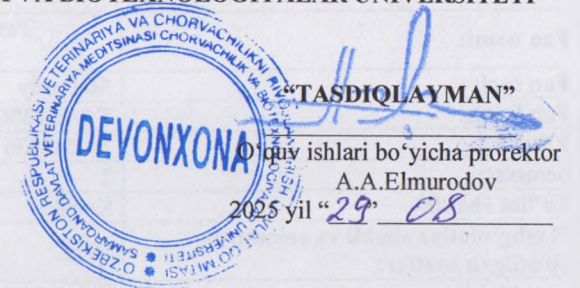 VA BIOTEXNOLOGIYALAR UNIVERSITETI
“TASDIQLAYMAN”
O‘quv ishlari bo‘yicha prorektor
A.A.Elmurodov
2025 yil “29” 08
DEVONXONA
O‘ZBEKISTON RESPUBLIKASI VETERINARIYA VA CHORVACHILIKNI RIVOJLANTIRISH QO‘MITASI
SAMARQAND DAVLAT VETERINARIYA MEDITSINASI CHORVACHILIK VA BIOTEXNOLOGIYALAR UNIVERSITETI